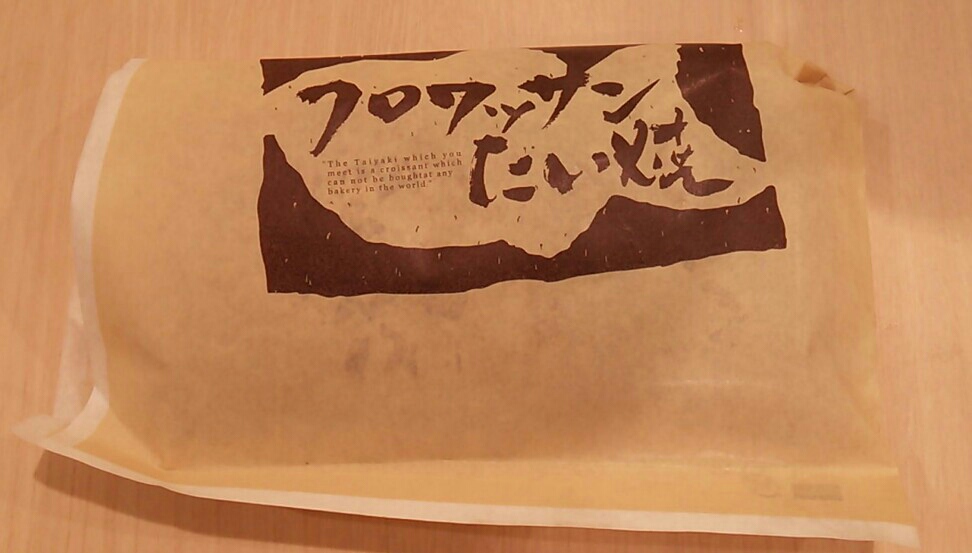 クロワッサン
たい焼
"The Taiyaki which you
meet is a croissant which
can not be boughtat any
bakery in the world."